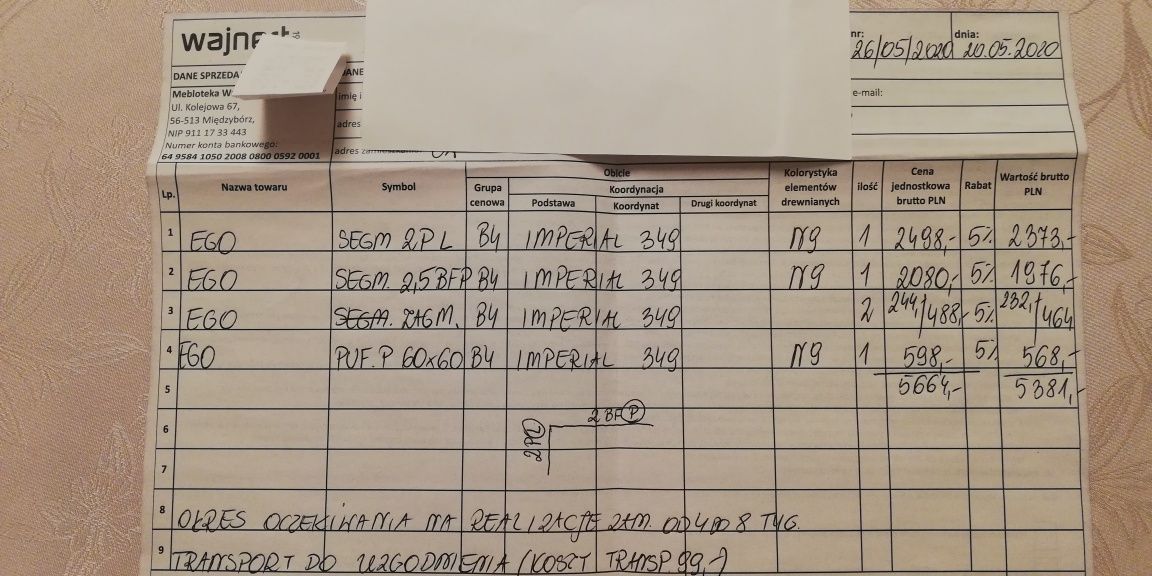 wajnert
nr:
26/05/2020
dnia:
20.05.2020
DANE SPRZEDA
DANE
Mebloteka W
imię i
Ul. Kolejowa 67,
56-513 Międzybórz,
adres
NIP 911 17 33 443
Numer konta bankowego:
64 9584 1050 2008 0800 0592 0001
adres
e-mail:
Lp. Nazwa towaru Symbol Grupa cenowa Obicie Koordynacja Podstawa Koordynat Drugi koordynat Kolorystyka elementów drewnianych ilość Cena jednostkowa brutto PLN Rabat Wartość brutto PLN
1 EGO SEGM 2P L B4 IMPERIAL 349 N9 1 2498,- 5% 2373,-
2 EGO SEGM. 2,5 BFP B4 IMPERIAL 349 N9 1 2080,- 5% 1976,-
3 EGO SEGM. ZAGM. B4 IMPERIAL 349 2 244,/488,- 5% 232,/464
4 EGO PUF. P 60x60 B4 IMPERIAL 349 N9 1 598,- 5% 568,-
5 5664,- 5381,-
6 2 BF P
2P L
7
8 OKRES OCZEKIWANIA NA REALIZACJE ZAM. OD 4 DO 8 TYG.
9 TRANSPORT DO UZGODNIENIA (KOSZT TRANSP. 99,-)